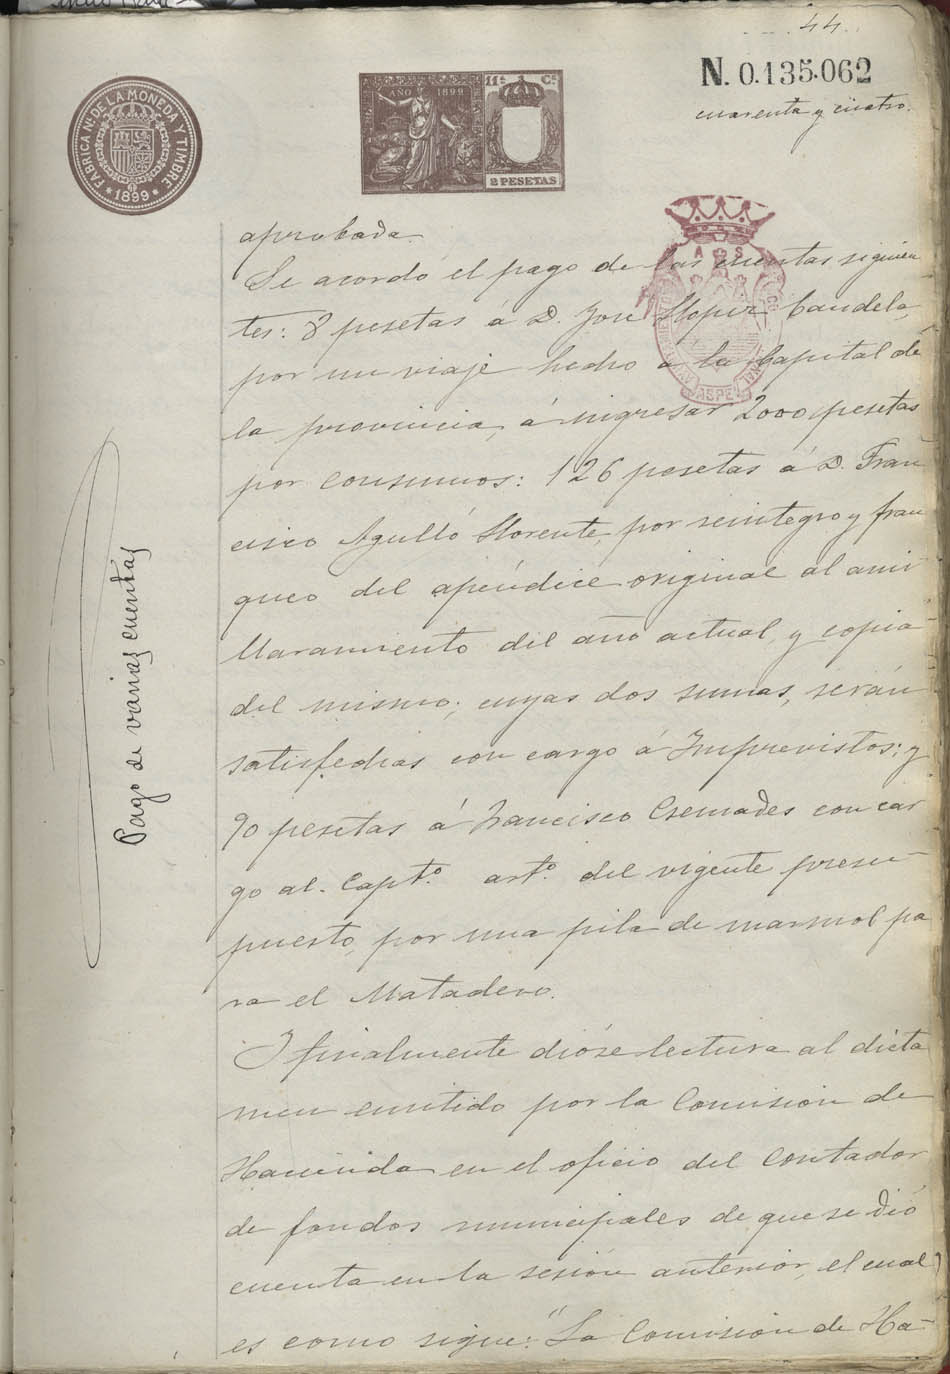 44
N. 0.135.062
cuarenta y cuatro.
FABRICA Nl. DE LA MONEDA Y TIMBRE
* 1899 *
AÑO 1899
11ª Cª
2 PESETAS
A S
ASPE
aprobada.
Se acordó el pago de las cuentas siguien
tes: 8 pesetas á D. José Llopiz Candela,
por un viaje hecho a la Capital de
la provincia, á ingresar 2000 pesetas
por consumos: 126 pesetas á D. Fran
cisco Agulló Llorente, por reintegro y fran
queo del apéndice original al ami
llaramiento del año actual, y copia
del mismo; cuyas dos sumas, serán
satisfechas con cargo á Imprevistos; y
90 pesetas á Francisco Cremades con car
go al. Captº. artº. del vigente presu-
puesto, por una pila de marmol pa
ra el Matadero.
Y finalmente dióse lectura al dicta
men emitido por la Comisión de
Hacienda en el oficio del Contador
de fondos municipales de que se dió
cuenta en la sesión anterior, el cual
es como sigue: "La Comisión de Ha-
Pago de varias cuentas